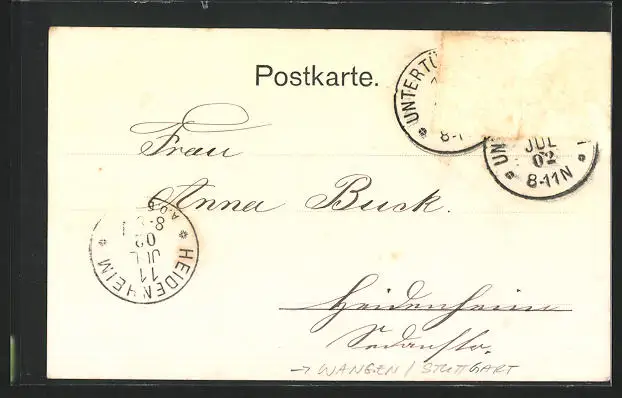 Postkarte.
UNTERTÜ
8-1
UN
JUL
02
8-11N
Frau
Anna Buck.
HEIDENHEIM
11
JUL
02
8-9
Heidenheim
Sedanstr.
→ WANGEN / STUTTGART